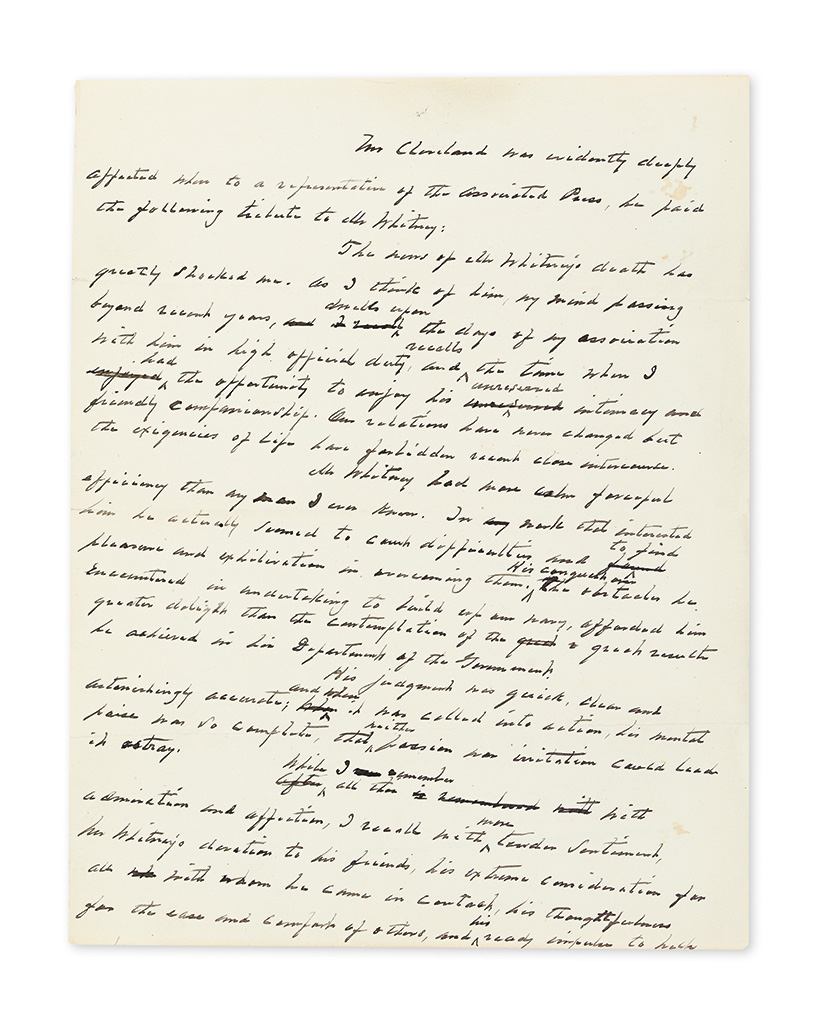 Mr Cleveland was evidently deeply
affected when to a representative of the Associated Press, he paid
the following tribute to Mr Whitney:
The news of Mr Whitney's death has
greatly shocked me. As I think of him, my mind passing
dwells upon
beyond recent years, and I recall the days of my association
recalls
with him in high official duty, and the time when I
had unreserved
enjoyed the opportunity to enjoy his unreserved intimacy and
friendly companionship. Our relations have never changed but
the exigencies of life have forbidden recent close intercourse.
Mr Whitney had more calm forceful
efficiency than any man I ever knew. In any work that interested
to find
him he actually seemed to court difficulties and found
His conquest over
pleasure and exhiliration in overcoming them. The obstacles he
encountered in undertaking to build up our navy, afforded him
greater delight than the contemplation of the great results
he achieved in his Department of the Government.
His judgment was quick, clear and
and when
astonishingly accurate; when it was called into action, his mental
neither
poise was so complete, that passion nor irritation could lead
it astray.
While I remember
After all this is remembered with with
more
admiration and affection, I recall with tender sentiment,
Mr Whitney's devotion to his friends, his extreme consideration for
all with whom he came in contact, his thoughtfulness
his
for the ease and comfort of others, and ready impulse to help